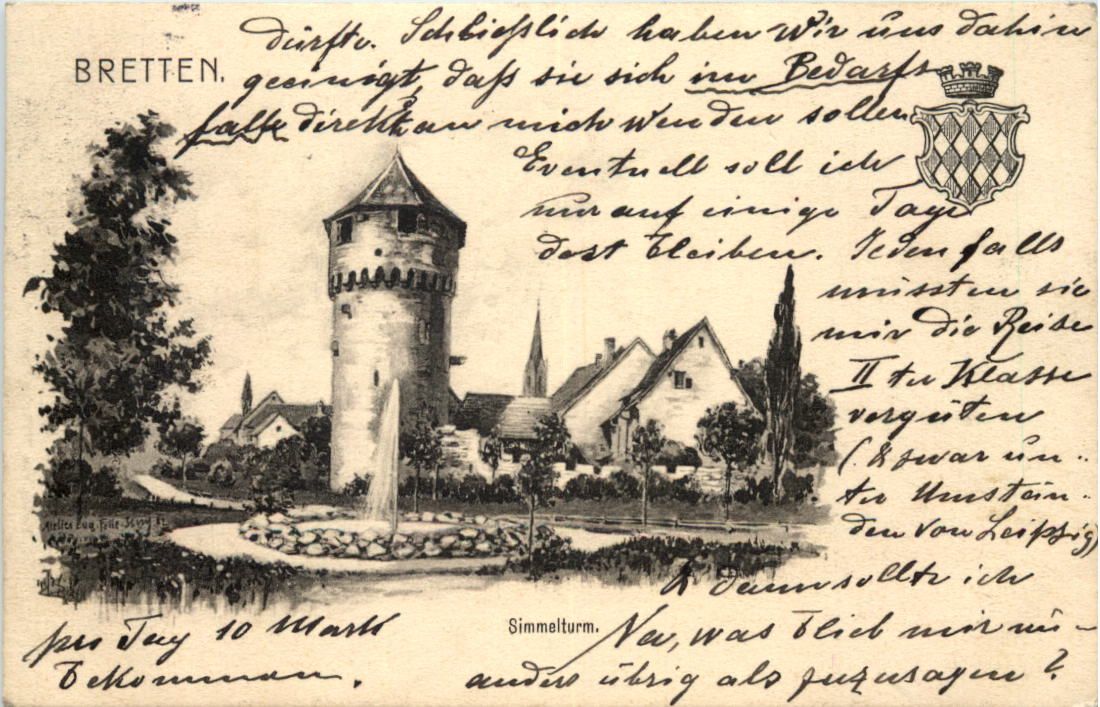 BRETTEN.
dürfte. Schließlich haben wir uns dahin
geeinigt, daß sie sich im Bedarfs
falle direkt an mich wenden sollen
Eventuell soll ich
nur auf einige Tage
dort bleiben. Jedenfalls
müssten sie
mir die Reise
II ter Klasse
vergüten
(& zwar un-
ter Umstän-
den von Leipzig)
& dann sollte ich
pro Tag 10 Mark
bekommen.
Simmelturm.
Na, was blieb mir
anders übrig als zuzusagen?